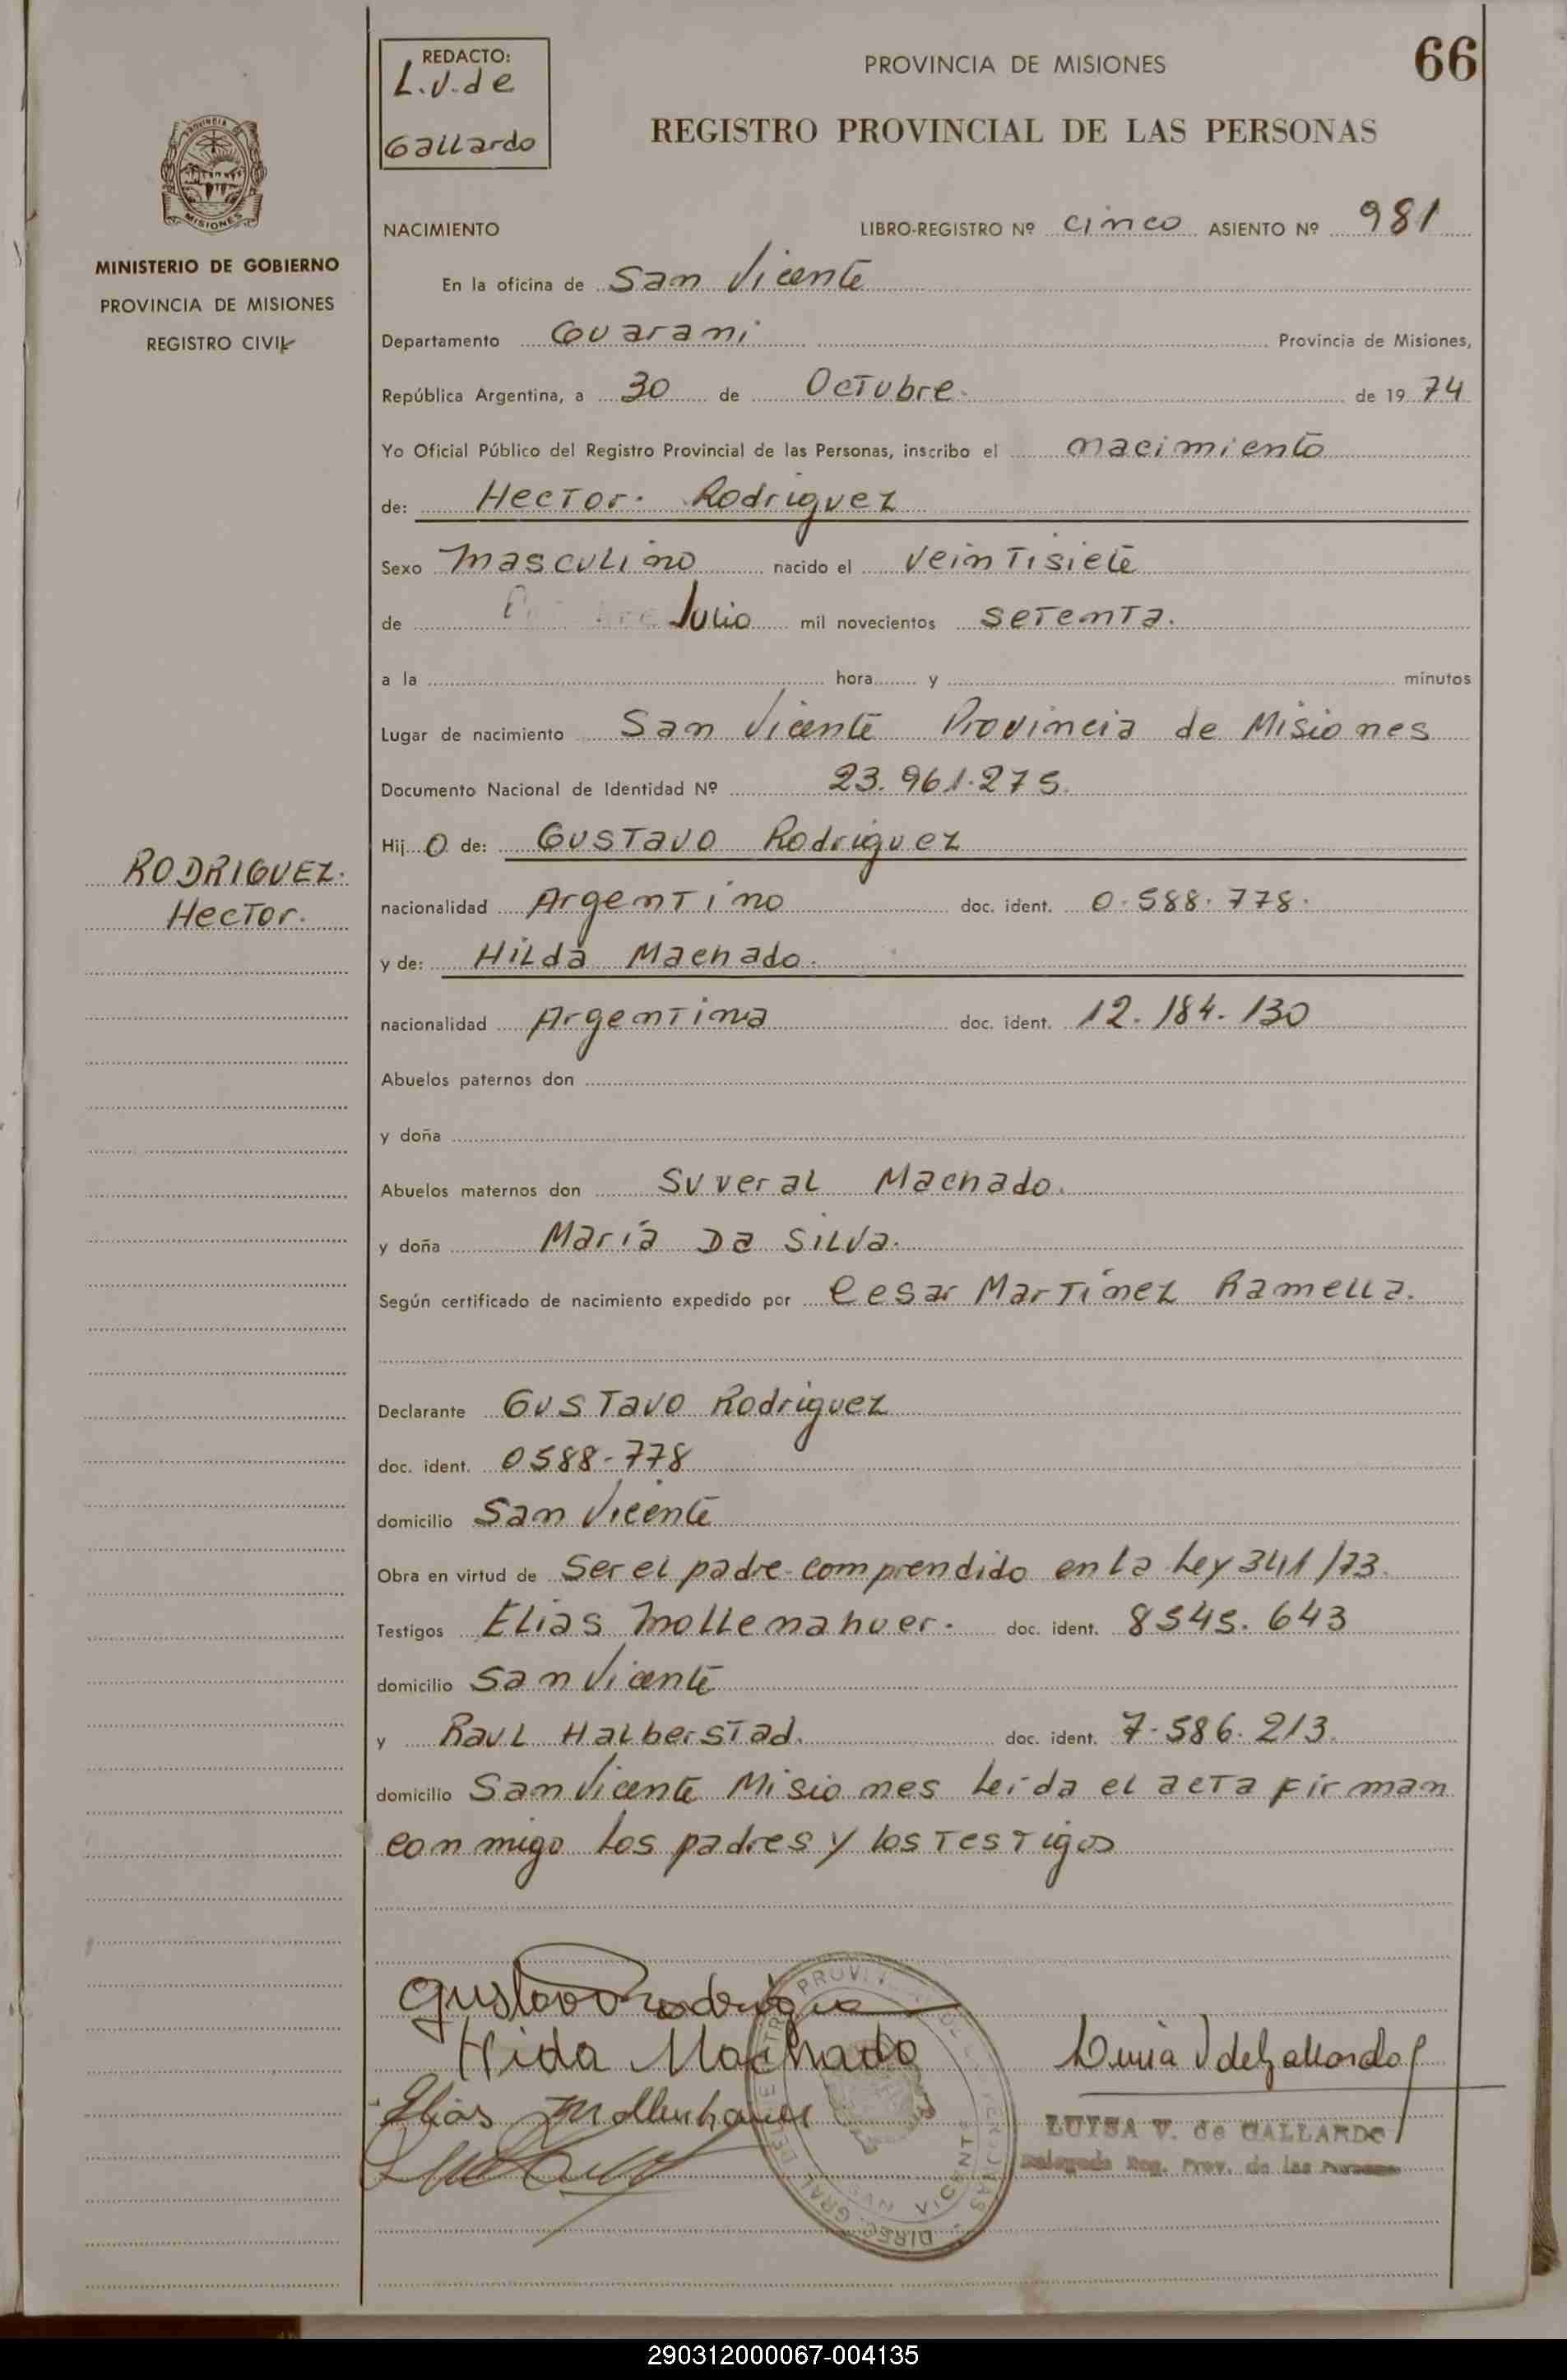 REDACTO:
L.V. de
Gallardo
PROVINCIA DE MISIONES
66
REGISTRO PROVINCIAL DE LAS PERSONAS
PROVINCIA DE
MISIONES
MINISTERIO DE GOBIERNO
PROVINCIA DE MISIONES
REGISTRO CIVIL
NACIMIENTO LIBRO-REGISTRO Nº cinco ASIENTO Nº 981
En la oficina de San Vicente
Departamento Guarani Provincia de Misiones,
República Argentina, a 30 de Octubre. de 19 74
Yo Oficial Público del Registro Provincial de las Personas, inscribo el nacimiento
de: Hector. Rodriguez
Sexo masculino nacido el veintisiete
de Julio mil novecientos setenta.
a la hora y minutos
Lugar de nacimiento San Vicente Provincia de Misiones
Documento Nacional de Identidad Nº 23.961.275.
Hij o de: Gustavo Rodriguez
RODRIGUEZ.
Hector.
nacionalidad Argentino doc. ident. 0.588.778.
y de: Hilda Machado.
nacionalidad Argentina doc. ident. 12.184.130
Abuelos paternos don
y doña
Abuelos maternos don Suveral Machado.
y doña Maria Da Silva.
Según certificado de nacimiento expedido por Cesar Martinez Ramella.
Declarante Gustavo Rodriguez
doc. ident. 0588-778
domicilio San Vicente
Obra en virtud de Ser el padre comprendido en la Ley 341/73.
Testigos Elias Mollemahuer. doc. ident. 8545.643
domicilio San Vicente
y Raul Halberstad. doc. ident. 7.586.213.
domicilio San Vicente Misiones Leida el acta firman
conmigo los padres y los testigos
Gustavo Rodrigue
Hida Machado
Luisa V de Gallardo
Elias Mollenhauer
LUISA V. de GALLARDO
Delegada Reg. Prov. de las Personas
290312000067-004135